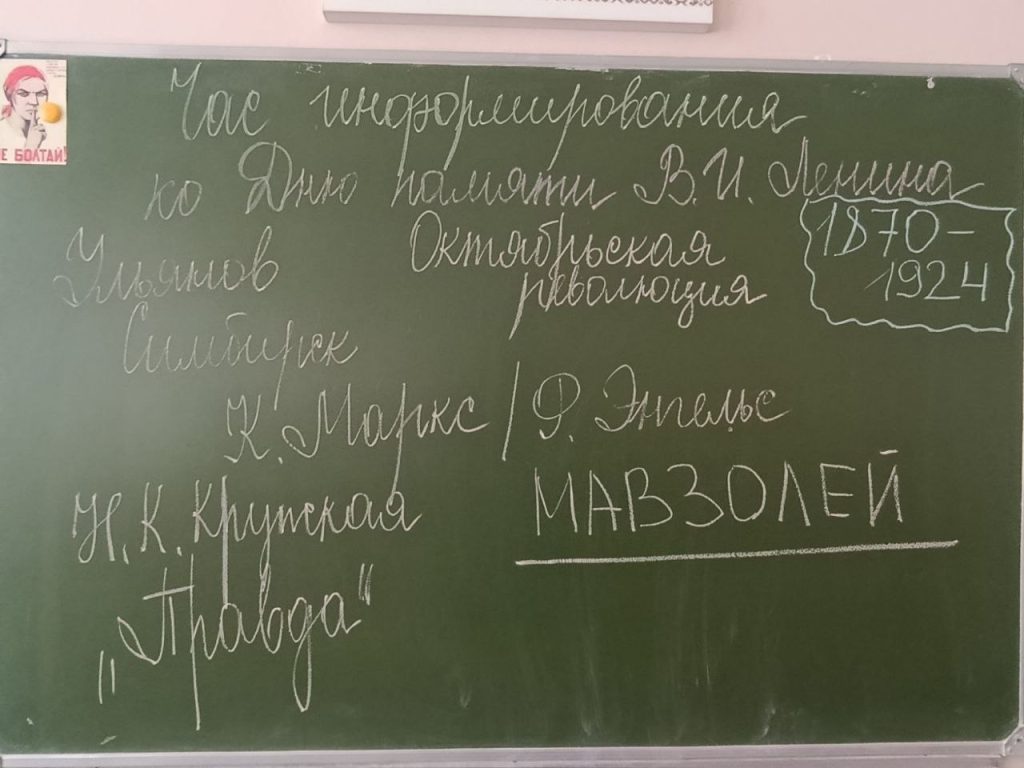 Час информирования
ко Дню памяти В.И. Ленина
1870 –
1924
Ульянов
Октябрьская
революция
Симбирск
К. Маркс / Ф. Энгельс
Н.К. Крупская
МАВЗОЛЕЙ
„Правда"
НЕ БОЛТАЙ!